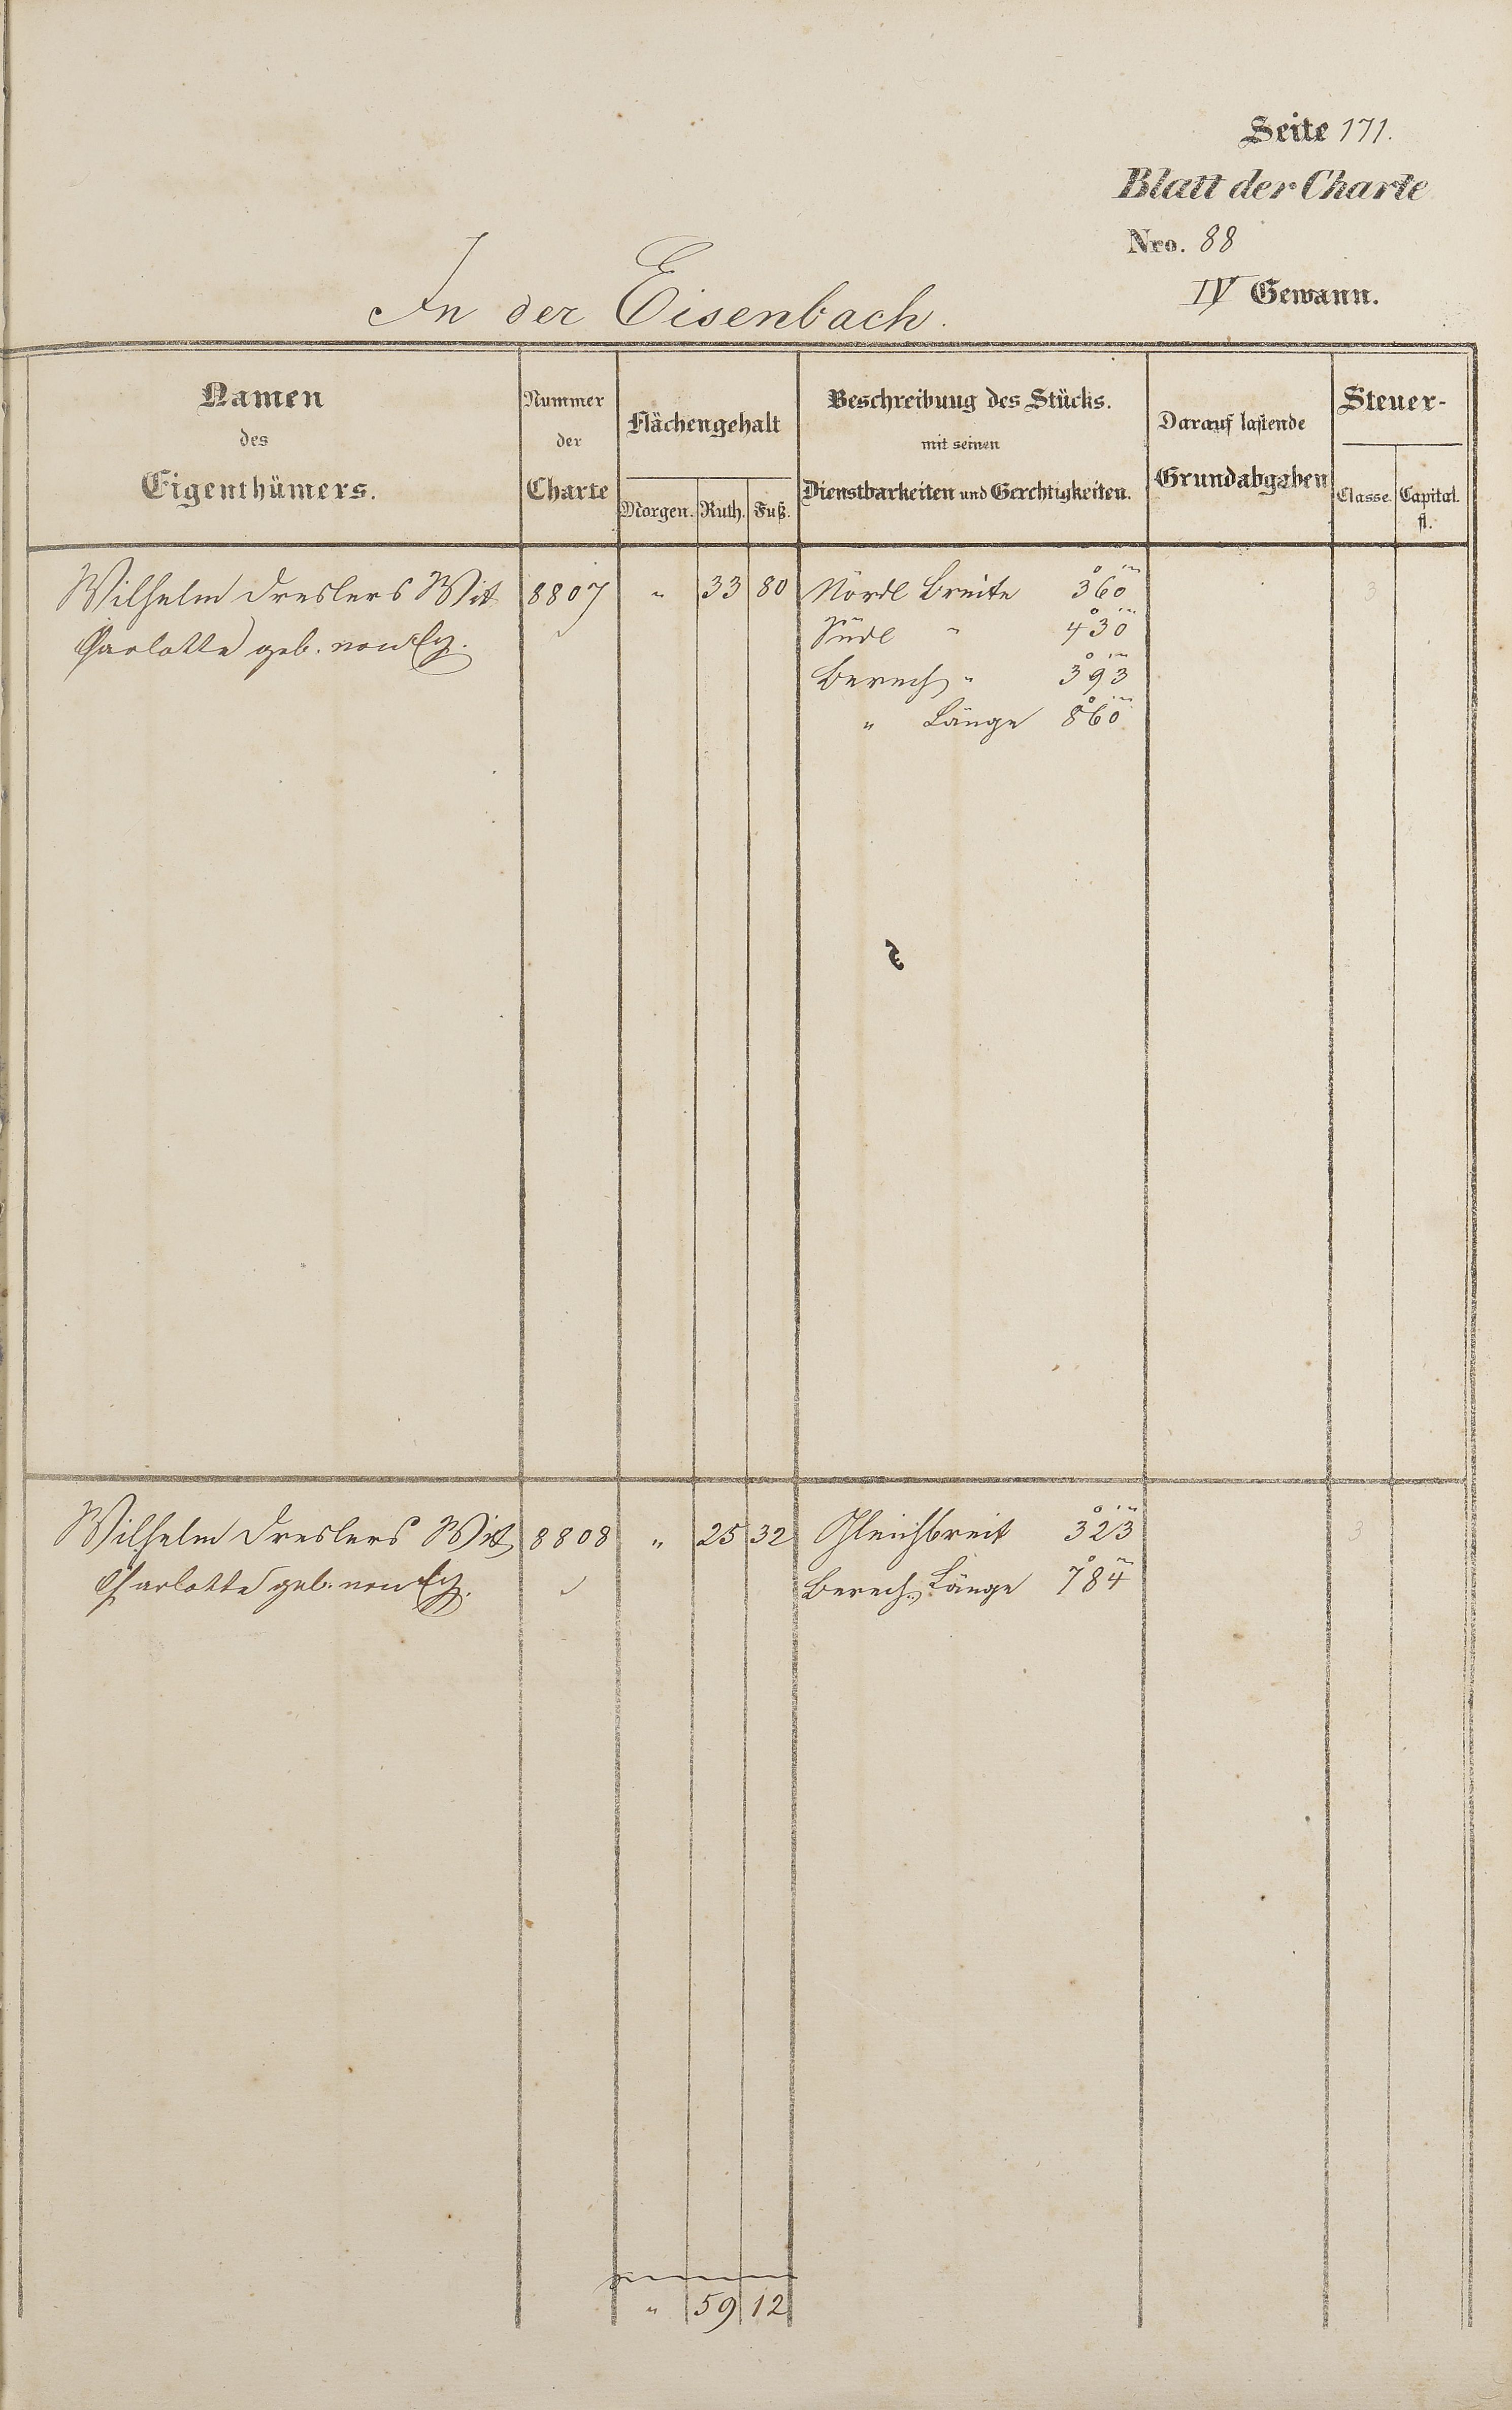 Seite 171.
Blatt der Charte
Nro. 88
IV Gewann.
In der Eisenbach.
Namen des Eigenthümers.
Nummer der Charte
Flächengehalt
Morgen. Ruth. Fuß.
Beschreibung des Stücks.
mit seinen
Dienstbarkeiten und Gerechtigkeiten.
Darauf lastende
Grundabgaben
Steuer-
Classe. Capital.
fl.
Wilhelm Dreslers Wit 8807 " 33 80 Nördl Breite 360 3
Charlotte geb. von Ey. Südl " 430
Berech " 393
" Länge 860
Wilhelm Dreslers Wit 8808 " 25 32 Gleichbreit 323 3
Charlotte geb. von Ey. Berech. Länge 784
" 59 12